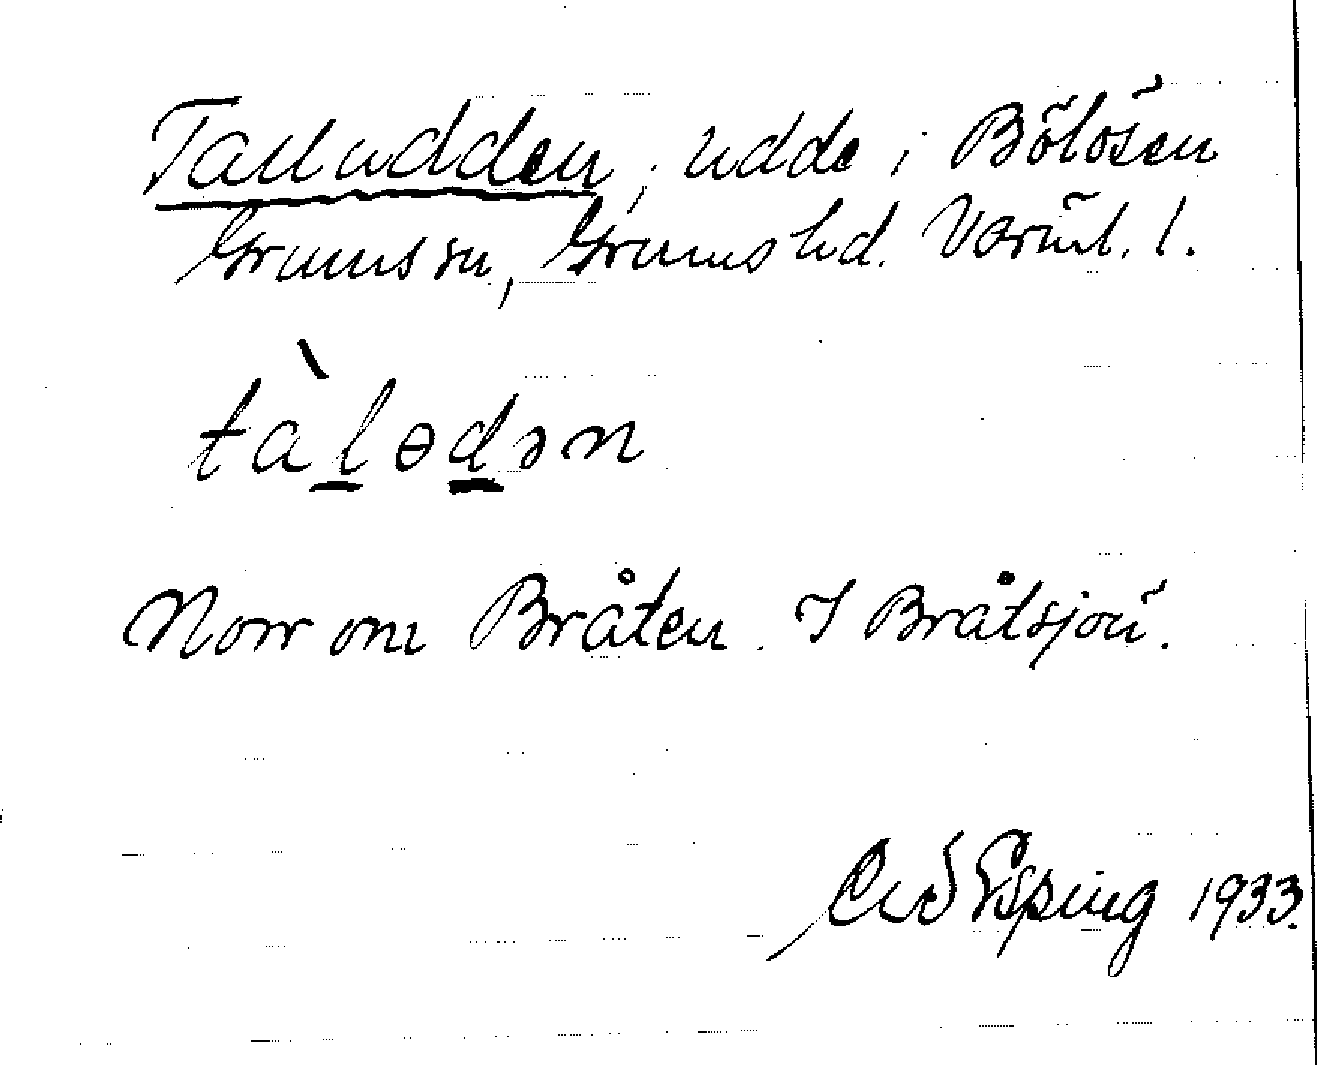 Talludden, udde i Bölösen
Grums sn, Grums hd. Värml. l.
tàlɵdən
Norr om Bråten. I Bråtsjön.
Esping 1933.